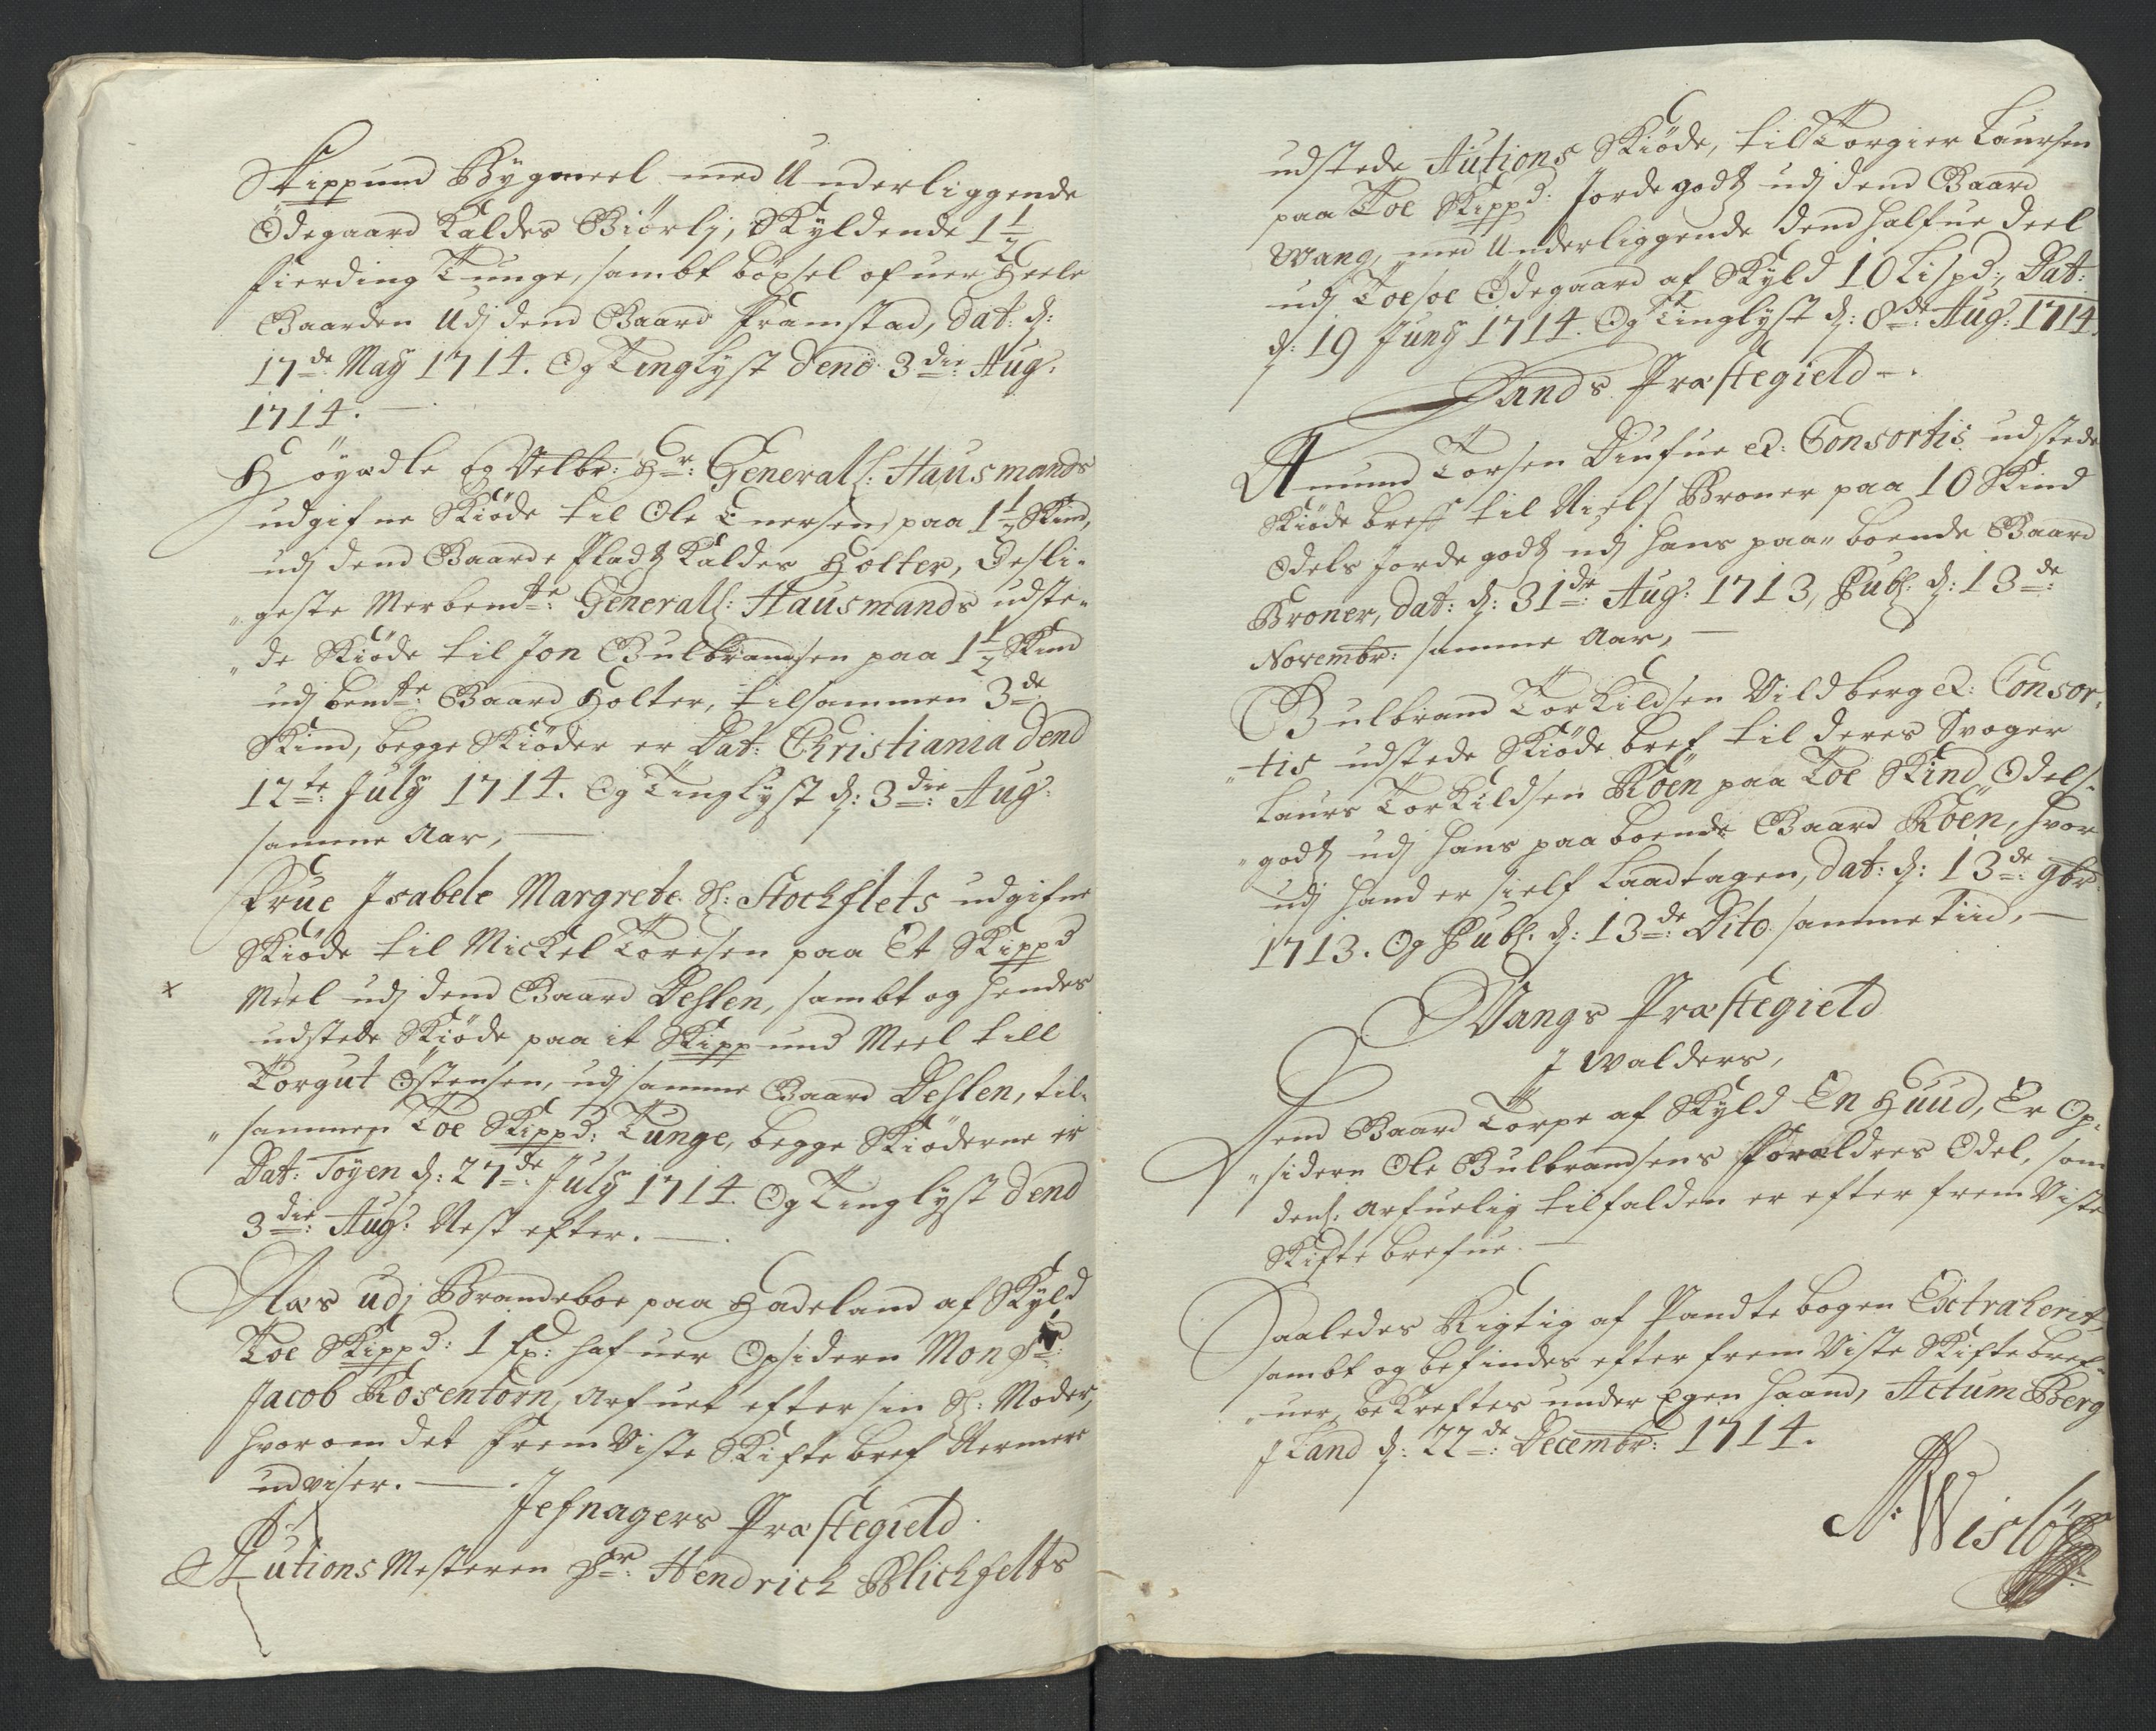 Skippund Bygmeel med Underliggende
Ödegaard Kaldes Biörlj, Skyldende 1 1/2
fierding Tunge, sambt böxsel ofuer Heele
Gaarden Udj dend Gaard Framstad, dat: d:
17de May 1714. Og Tinglyst dend 3die Aug:
1714.
Höyædle Og Velbr: Hr: Generall: Hausmands
udgifne Skiöde til Ole Enersen paa 1 1/2 Skind,
udj dend Gaarde Pladtz Kaldes Holter, Desli-
"geste Merbemte: Generall: Hausmands udste-
"de Skiöde til Jon Gulbrandsen paa 1 1/2 Skind
udj bemte: Gaard Holter, tilsammen 3de
Skind, begge Skiöder er Dat: Christiania dend
12te: July 1714. Og Tinglyst d: 3die: Aug:
samme Aar,
Frue Isabele Margrete Sl: Stochflets udgifne
Skiöde til Mickel Toresen paa Et Skippd
x Meel udj dend Gaard Dehlen, sambt og hendes
udstede Skiöde paa it Skippund Meel till
Torgut Östensen, udj samme Gaard Dehlen, til-
"sammen Toe Skippd: Tunge, begge Skiöderne er
Dat: Töyen d: 27de: July 1714. Og Tinglyst dend
3die: Aug: Nest efter.
Aas udj Brandeboe paa Hadeland af Skyld
Toe Skippd: 1 fp: hafuer Opsidern Monsr:
Jacob Rosentorn, Arfuet efter sin Sl: Moder,
hvorom det frem Viste Skifte bref Nermere
udviser.
Jefnagers Præstegield.
Autions Mesteren Hr: Hendrich Blichfelts
udstede Autions Skiöde, til Torgier Laursen
paa Toe Skippd: Jordegodtz udj dend Gaard
Wang, med Underliggende dend halfue deel
udj Toesoe Ödegaard af Skyld 10 Lispd:, Dat:
d: 19 Juny 1714. Og Tinglyst d: 8de: Aug: 1714.
Lands Præstegield.
Amund Torsen Diufue et: Consortis udstede
Skiöde breff til Niels Broner paa 10 Skind
Odels Jordegodtz udj hans paa" boende Gaard
Broner, dat: d: 31de: Aug: 1713, Publ: d: 13de:
Novembr: samme Aar,
Gulbrand Torkildsen Vildberg et: Consor-
"tis udstede Skiöde bref til deres Svoger
Laurs Torkildsen Röen paa Toe Skind Odels-
"godtz udj hans paa boende Gaard Röen, hvor
udj hand er sielf Laadtagen, dat: d: 13de: 9br:
1713. Og Publ: d: 13de: Dito samme Tiid,
Vangs Præstegield
J Walders,
Dend Gaard Torpe af Skyld En Huud, Er Op-
"sidern Ole Gulbrandsens Forældres Odel, som
dend: Arfuelig tilfalden er efter frem Viste
Skifte brefue.
Saaledes Rigtig af Pandte bogen Extraherit,
sambt og befindes efter frem Viste Skifte bref-
"uer, bekreftes under Egen haand, Actum Berg
J Land d: 22de: Decembr: 1714.
N: Wislöff